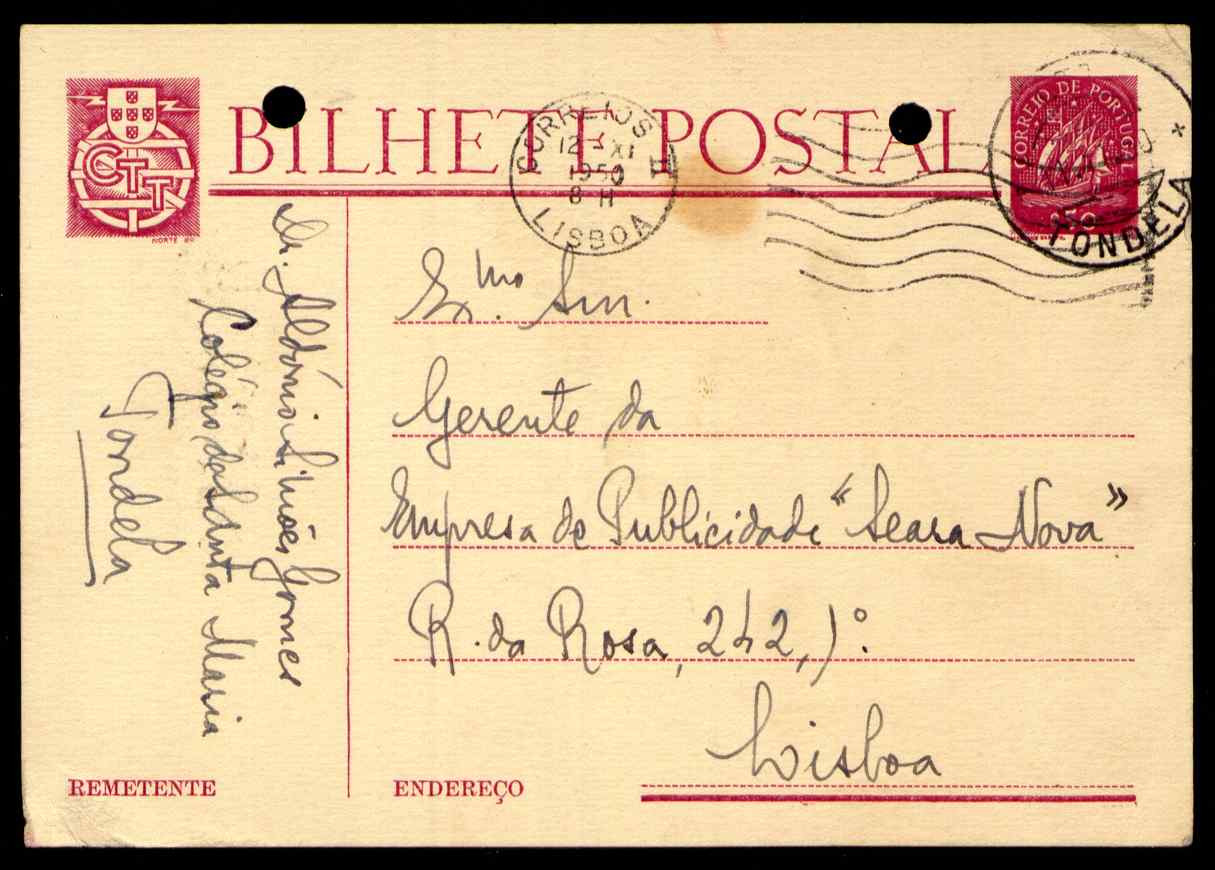 BILHETE POSTAL
CTT
NORTE
CORREIOS
12-XI
1950
8 H
LISBOA
CORREIO DE PORTUGAL
$50
TONDELA
Exmo. Snr.
Gerente da
Empresa de Publicidade "Seara Nova"
R. da Rosa, 242, 1º:
Lisboa
ENDEREÇO
Dr. Aldónio Simões Gomes
Colégio da Santa Maria
Tondela
REMETENTE